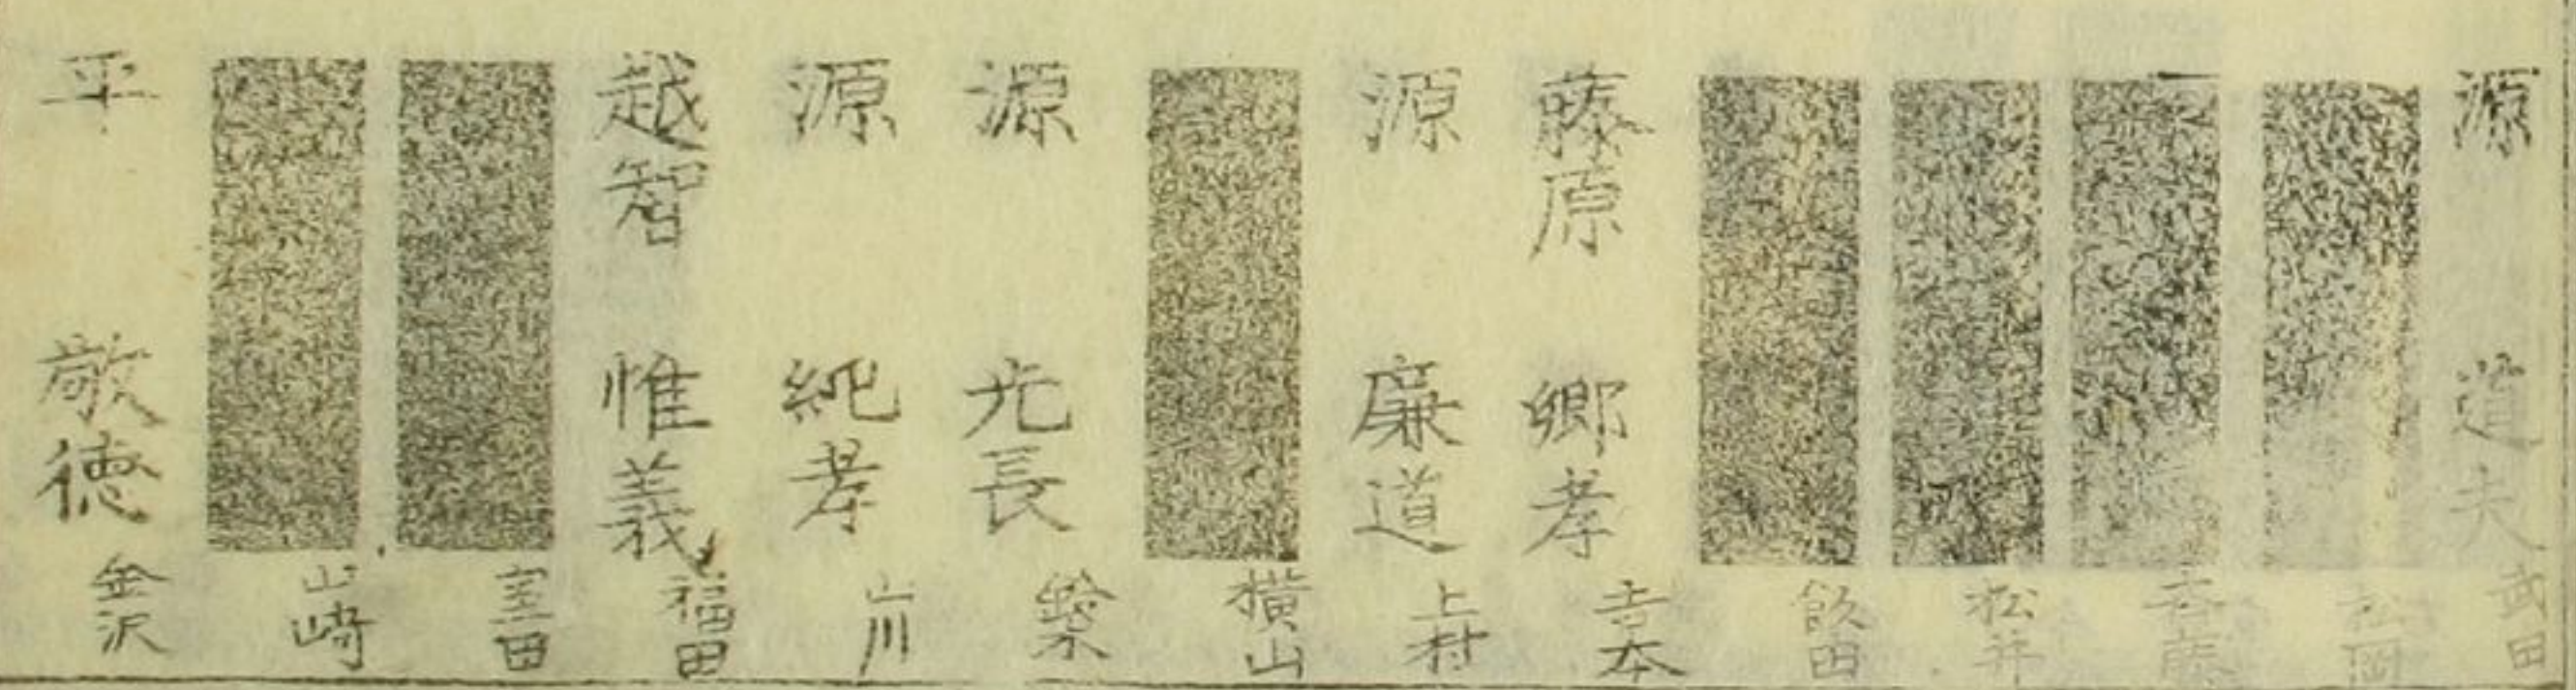 源 道夫 武田
松岡
斎藤
松井
飯田
藤原 郷孝 吉本
源 廉道 上村
横山
源 光長 鈴木
源 純孝 山川
越智 惟義 福田
室田
山崎
平 敬徳 金沢